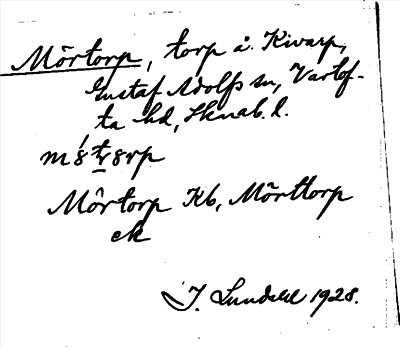 Mörtorp, torp å. Kivarp,
Gustaf Adolfs sn, Vartof-
ta hd, Skarab. l.
Mörtorp Kb, Mörttorp
ek
J. Lundahl 1928.